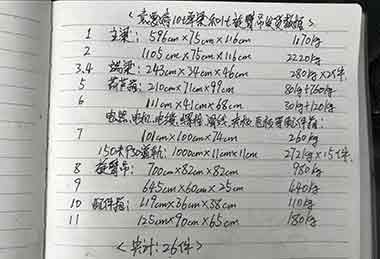 1 主梁: 596cm×75cm×116cm 1170kg
2 1105cm×75cm×116cm 2220kg
3.4 端梁: 243cm×34cm×46cm 280kg×2件
5 210cm×71cm×99cm 80kg+760kg
6 111cm×41cm×68cm 30kg+120kg
电缆
7 101cm×100cm×74cm 260kg
150米P30 1000cm×11cm×11cm 272kg×15件
8 旋臂吊: 700cm×82cm×82cm 980kg
9 645cm×60cm×25cm 640kg
10 配件箱: 119cm×36cm×38cm 110kg
11 125cm×90cm×65cm 180kg
<共计: 26件>